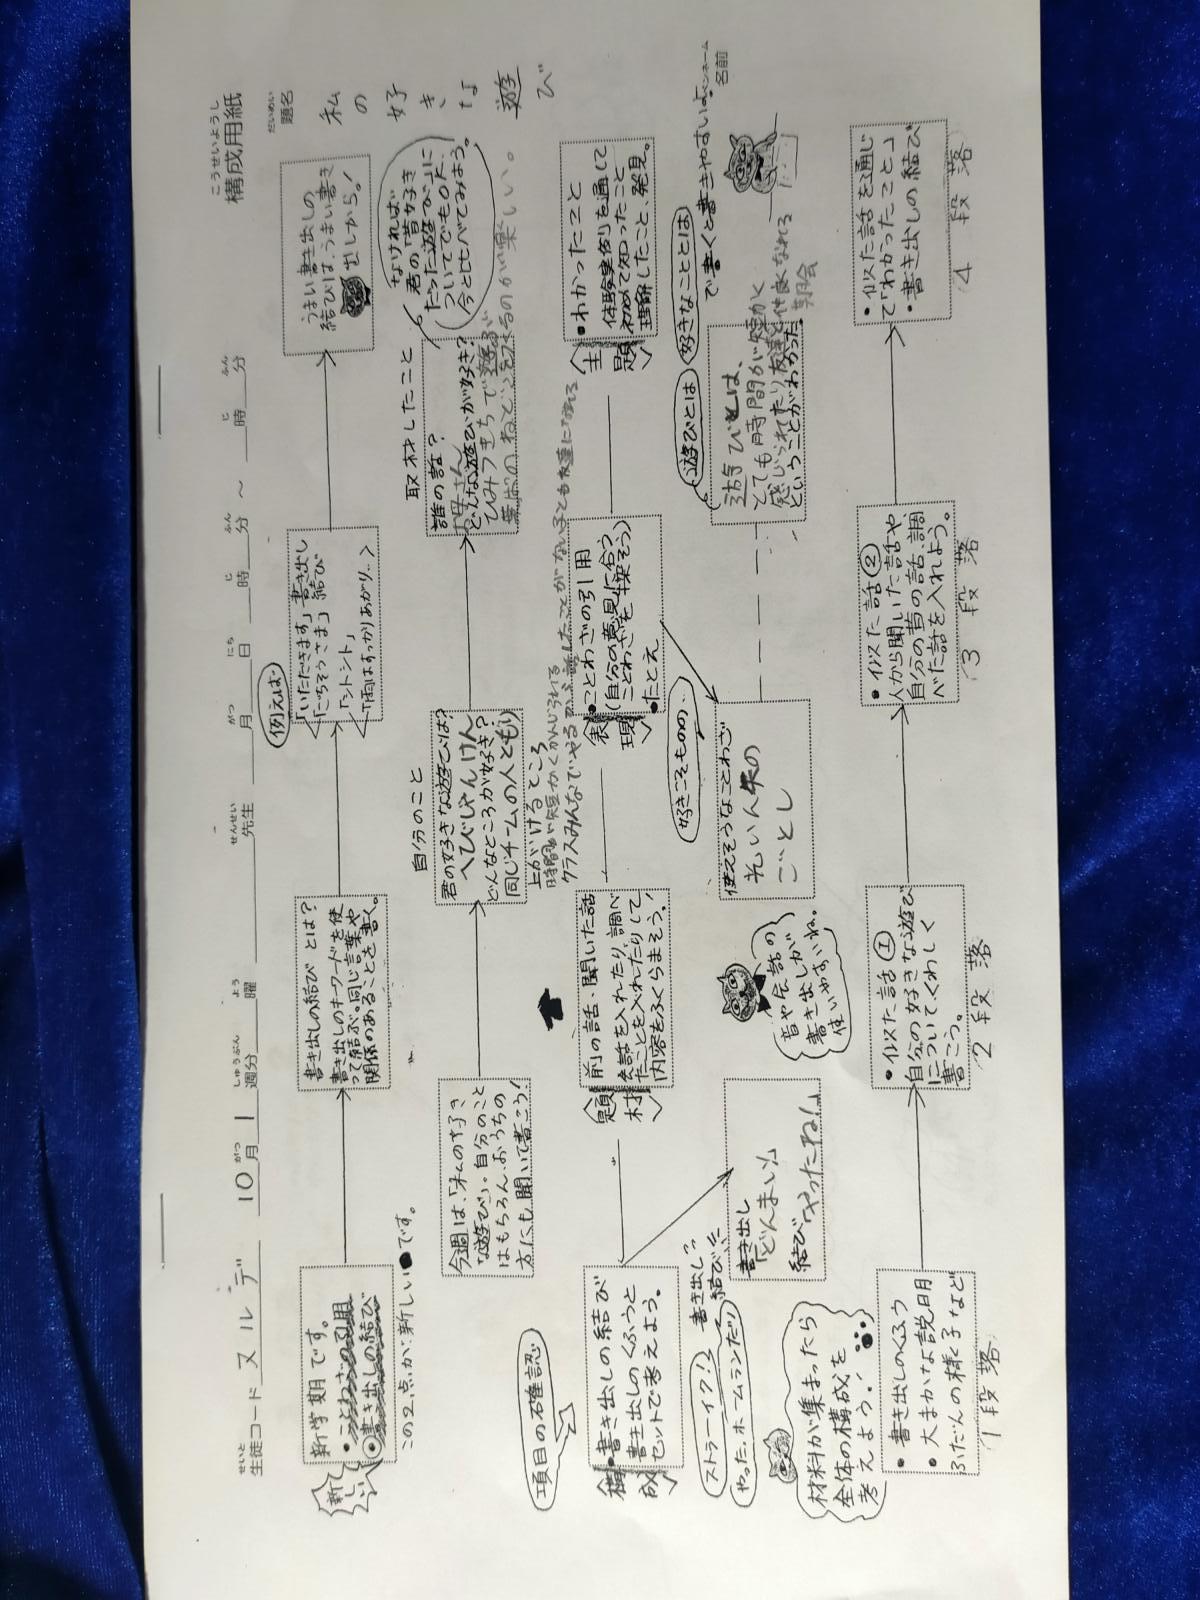 構成用紙
こうせいようし
題名
だいめい
私の好きな遊び
名前
ペンネーム
生徒コード ヌルデ 10月1週分 曜 先生 月 日 時 分 ～ 時 分
せいと がつ しゅうぶん よう せんせい がつ にち じ ふん じ ふん
新しい
新学期です。
・ことわざの引用
・書き出しの結び
この2点が新しい●です。
書き出しの結びとは?
書き出しのキーワードを使
って結ぶ。同じ言葉や
関係のあることを書く。
例えば
「いただきます」書き出し
「ごちそうさま」結び
「トントン」
うまい書き出しの
結びは、うまい書き
出しから。!
今週は、「私の好き
な遊び」。自分のこと
はもちろん、おうちの
方にも聞いて書こう!
自分のこと
君の好きな遊びは?
へびじゃんけん
どんなところが好き?
同じチームの人ともり
上がけるところ
取材したこと
誰の話?
お母さん
どんな遊びが好き?
ひみつきちで遊ぶ
なければ
君の「昔好き
だった遊び」に
ついてでもOK、
今と比べてみよう。
項目の確認
構成
・書き出しの結び
書き出しのくふうと
セットで考えよう。
題材
前の話・聞いた話
会話を入れたり、調べ
たことを入れたりして
内容をふくらまそう!
表現
・ことわざの引用
(自分の意見に合う
ことわざを探そう)
・たとえ
主題
・わかったこと
体験実例を通して
初めて知ったこと
理解したこと、発見。
ストラーイク!!
やった、ホームランだ!!
書き出し?
結び
書き出し
「どんまい」
結び「やったね!」
音や会話の
書き出しが
使いやすいね。
好きこそものの…
使えそうなことわざ
光いん矢の
ごとし
遊びとは
好きなこととは
で書くと書きやすいよ
遊びとは、
とても時間が短かく
感じられたり友達と仲良くなれる
ということがわかった。
朝会
材料が集まったら
全体の構成を
考えよう!
・書き出しのくふう
・大まかな説明
ふだんの様子など
1段落
・似た話①
自分の好きな遊び
についてくわしく
書こう。
2段落
・似た話②
人から聞いた話や
自分の昔の話、調
べた話を入れよう。
3段落
・似た話を通じ
て「わかったこと」
・書き出しの結び
4段落